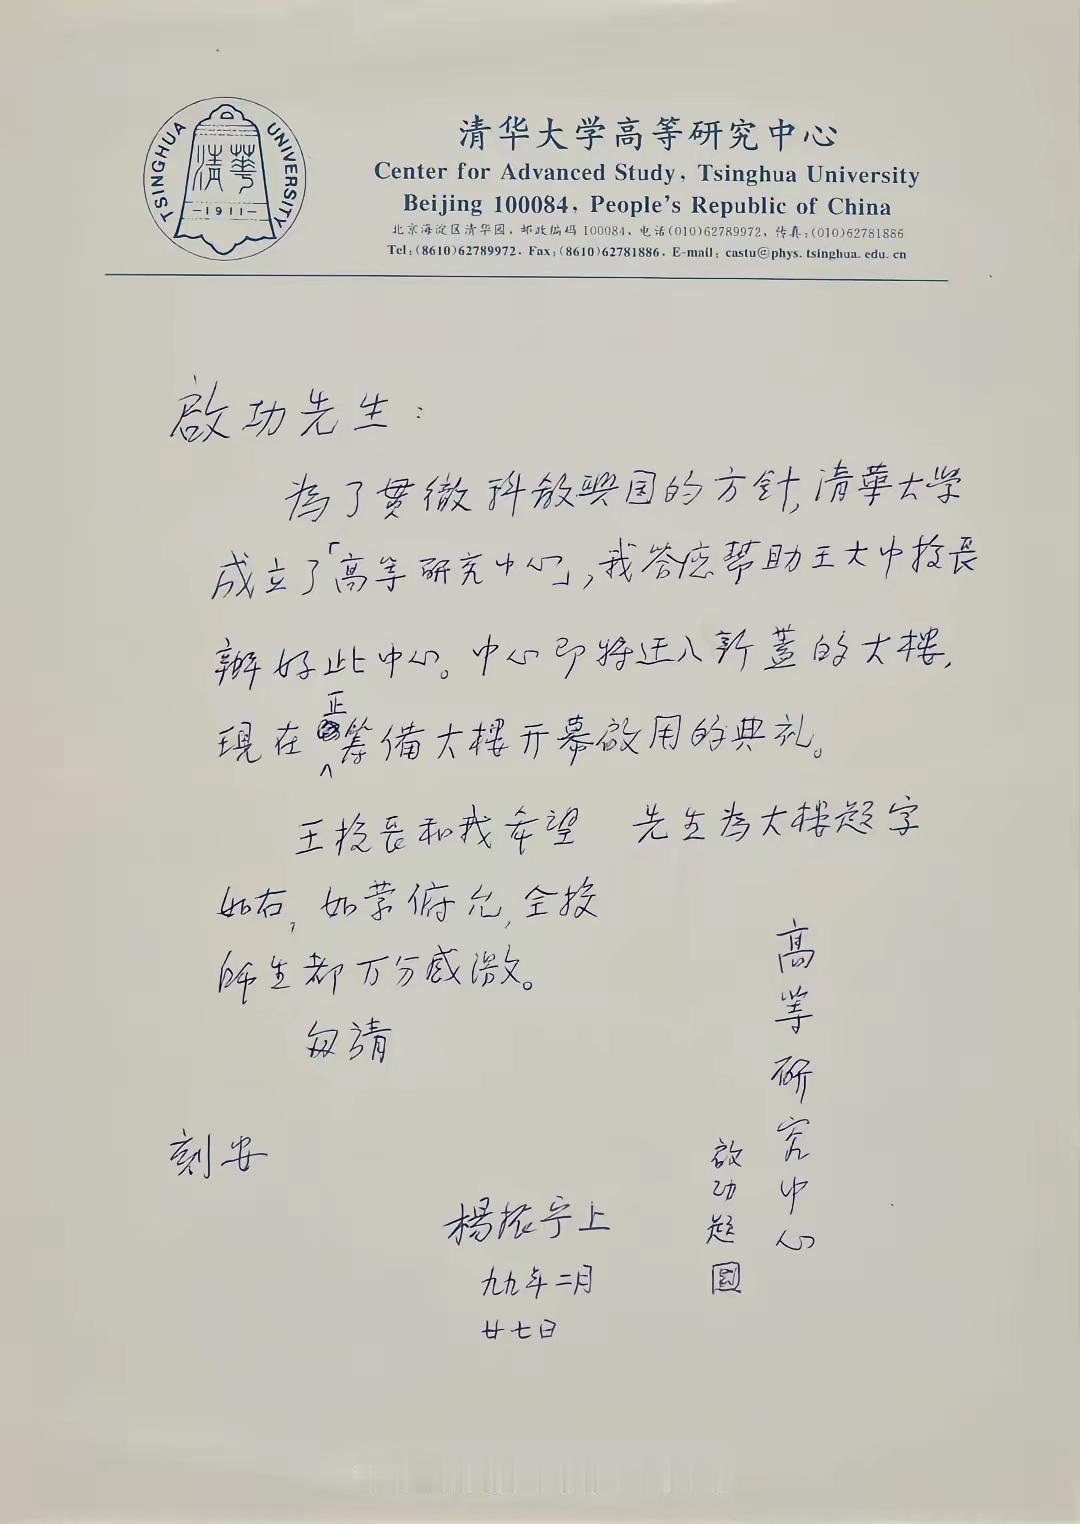 TSINGHUA UNIVERSITY
清華
-1911-
清华大学高等研究中心
Center for Advanced Study, Tsinghua University
Beijing 100084, People's Republic of China
北京海淀区清华园, 邮政编码 100084, 电话(010)62789972, 传真:(010)62781886
Tel:(8610)62789972, Fax:(8610)62781886, E-mail: castu@phys.tsinghua.edu.cn
啟功先生：
為了贯徹科教興国的方針,清華大学
成立了「高等研究中心」,我答应幫助王大中校長
辦好此中心。中心即将迁入新蓋的大樓,
現在正籌備大樓开幕啟用的典礼。
王校長和我希望 先生為大樓題字
如右,如蒙俯允,全校
師生都万分感激。
匆請
刻安
楊振宁上
九九年二月
廿七日
高等研究中心
啟功題